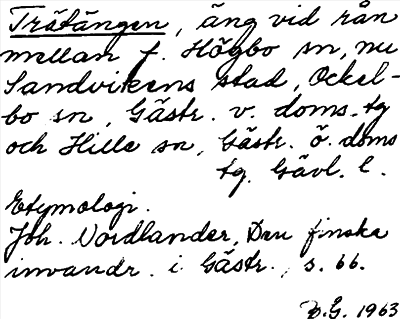 Trätängen, äng vid rån
mellan f. Högbo sn, nu
Sandvikens stad, Ockel-
bo sn, Gästr. v. doms. tg
och Hille sn, Gästr. ö. doms
tg. Gävl. l.
Etymologi.
Joh. Nordlander, Den finska
invandr. i Gästr., s. 66.
B.G. 1963